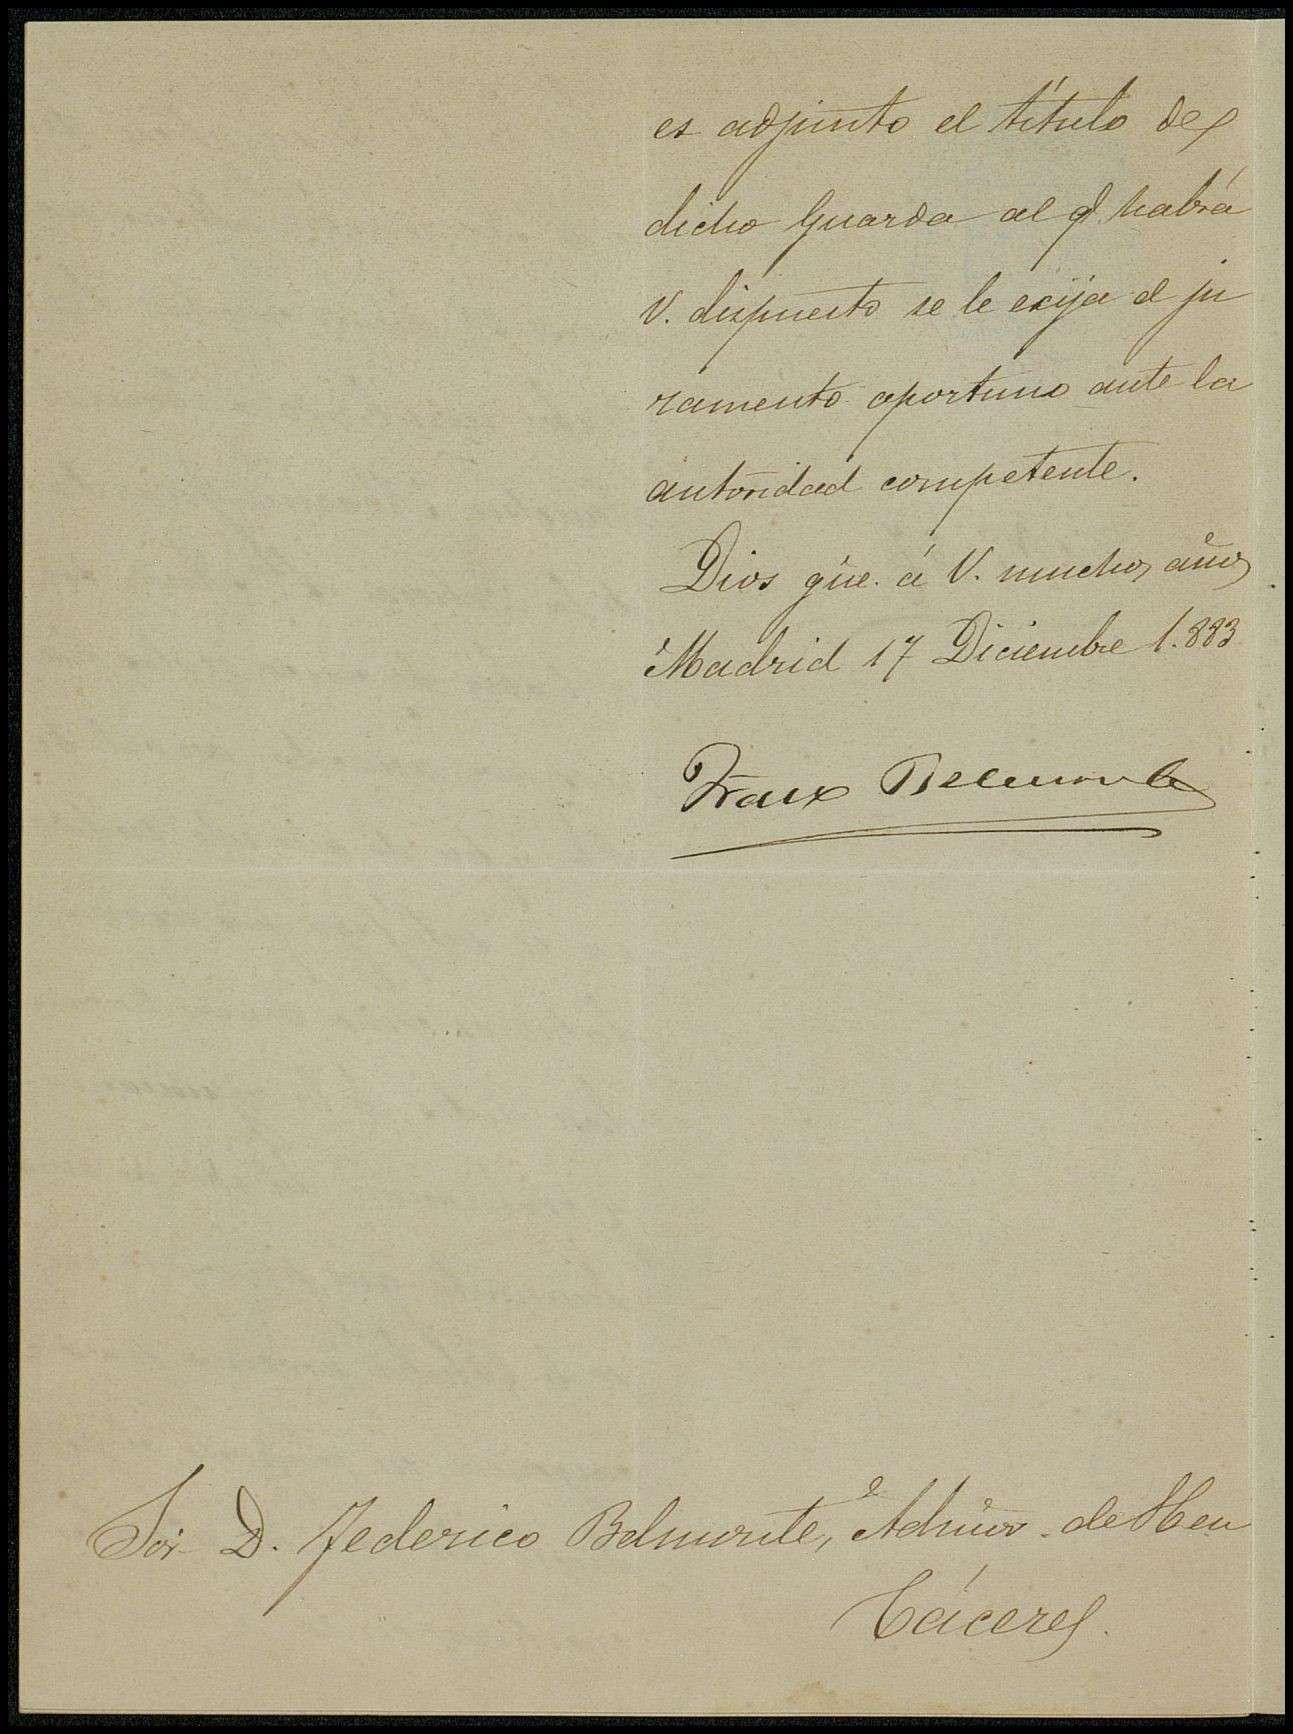 es adjunto el título de
dicho Guarda al q habrá
V. dispuesto se le exija el ju
ramento oportuno ante la
autoridad competente.
Dios gue. á V. muchos años
Madrid 17 Diciembre 1.883
Belmonte
Sor D. Federico Belmonte, Admor. de
Cáceres.